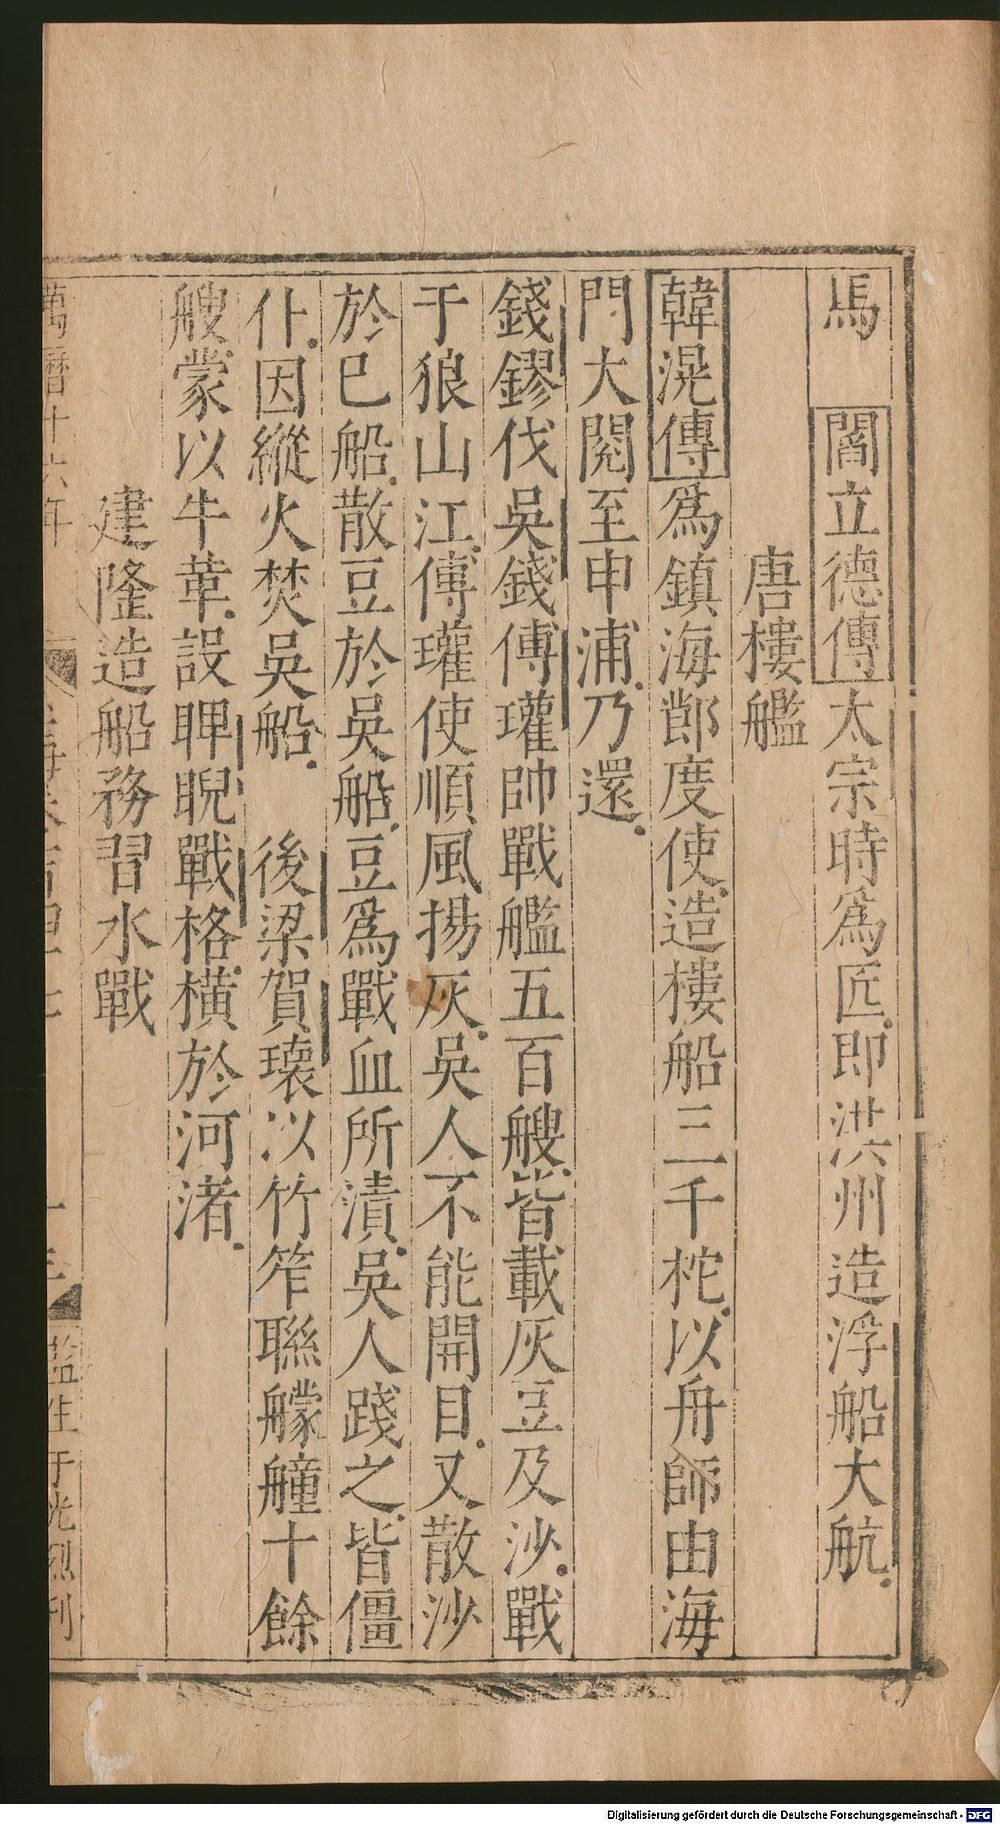 馬　閻立德傳太宗時爲匠即洪州造浮船大航
唐樓艦
韓滉傳爲鎮海節度使造樓船三千柁以舟師由海
門大閱至申浦乃還
錢鏐伐吳錢傅瓘帥戰艦五百艘皆載灰豆及沙戰
于狼山江傅瓘使順風揚灰吳人不能開目又散沙
於已船散豆於吳船豆爲戰血所漬吳人踐之皆僵
仆因縱火焚吳船　後梁賀瓌以竹笮聯艨艟十餘
艘蒙以牛革設睥睨戰格橫於河渚
建隆造船務習水戰
萬曆十六年
監生于光烈刊
Digitalisierung gefördert durch die Deutsche Forschungsgemeinschaft - DFG